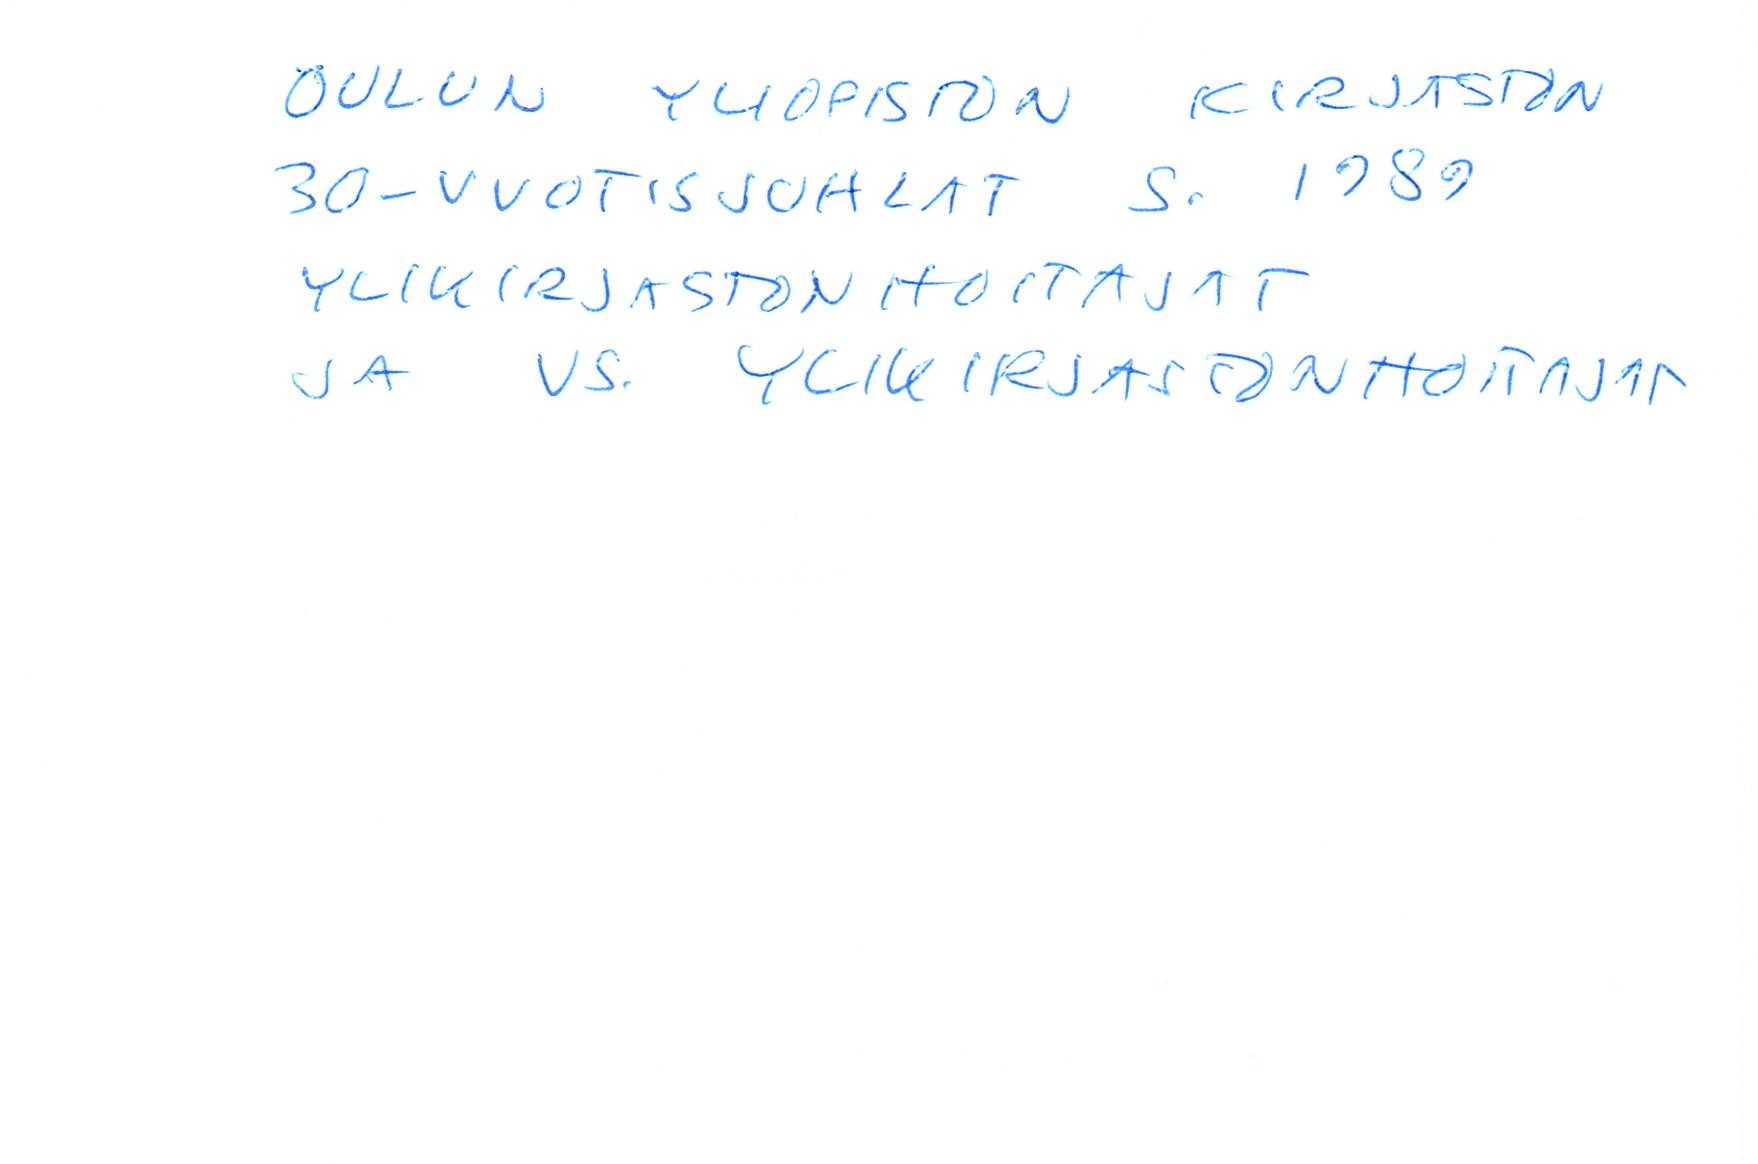 OULUN YLIOPISTON KIRJASTON
30-VUOTISJUHLAT S. 1989
YLIKIRJASTONHOITAJAT
JA VS. YLIKIRJASTONHOITAJAT